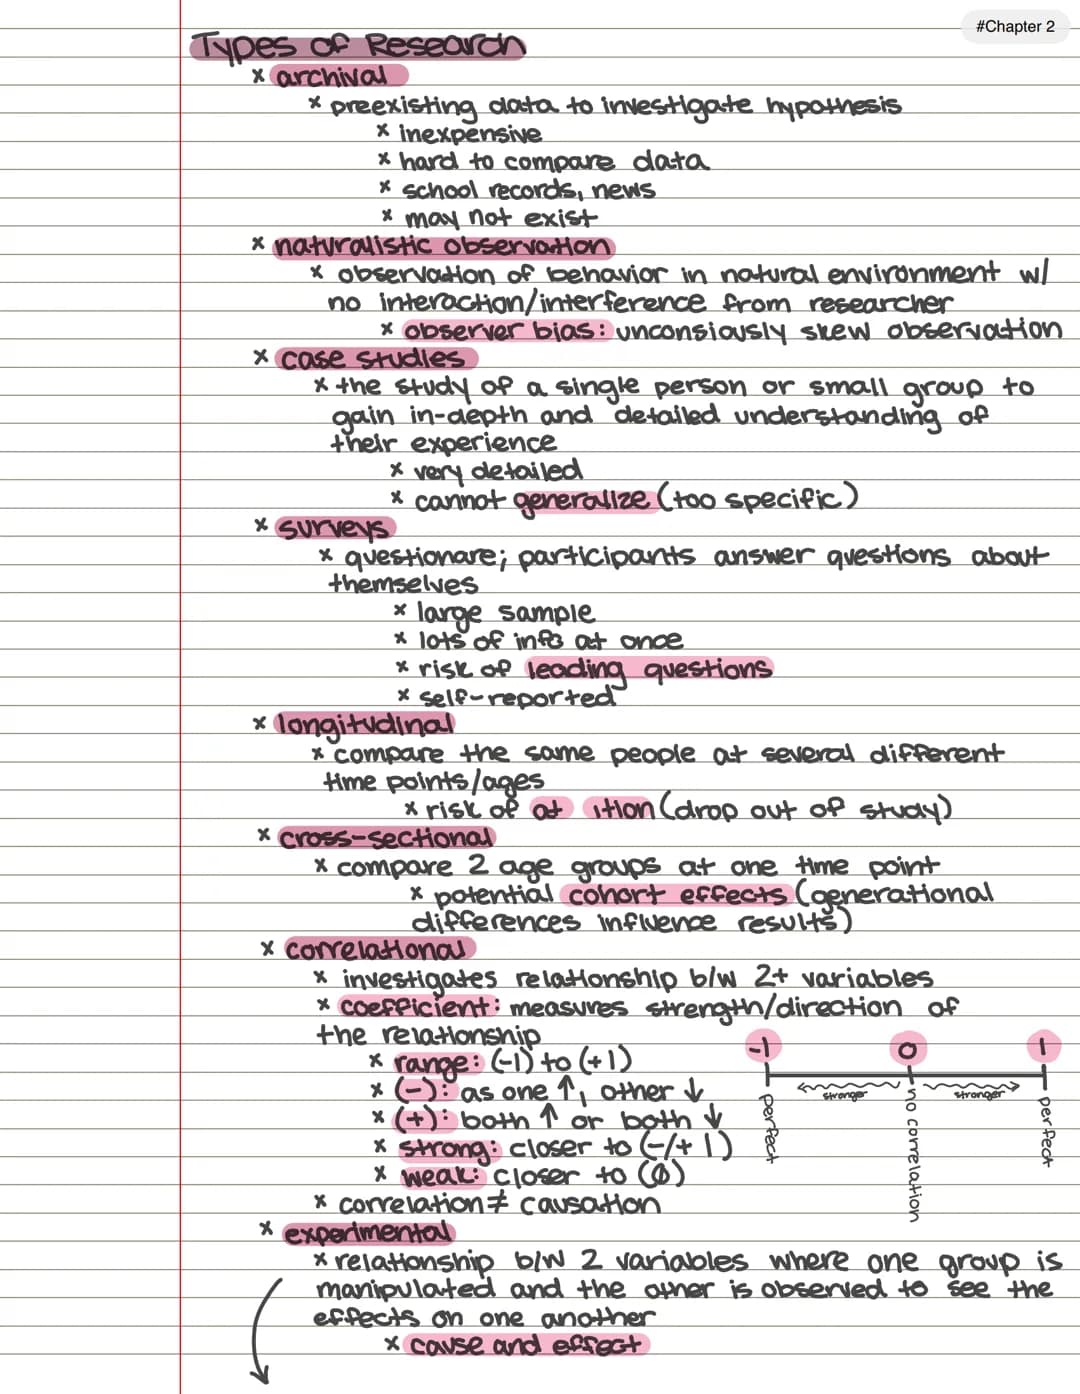 #Chapter 2
Types of Research
x archival
x preexisting data to investigate hypothesis
x inexpensive
x hard to compare data
x school records, news
x may not exist
x naturalistic observation
x observation of behavior in natural environment w/
no interaction/interference from researcher
x observer bias: unconsiously skew observation
x case studies
x the study of a single person or small group to
gain in-depth and detailed understanding of
their experience
x very detailed
x cannot generalize (too specific)
x surveys
x questionare; participants answer questions about
themselves
x large sample
x lots of info at once
x risk of leading questions
x self-reported
x longitudinal
x compare the same people at several different
time points/ages
x risk of at ition (drop out of study)
x cross-sectional
x compare 2 age groups at one time point
x potential cohort effects (generational
differences influence results)
x correlational
x investigates relationship b/w 2+ variables
x coefficient: measures strength/direction of
the relationship
x range: (-1) to (+1)
x (-): as one ↑, other ↓
x (+): both ↑ or both ↓
x strong: closer to (-/+ 1)
x weak: closer to (0)
x correlation ≠ causation
-1 0 1
stronger stronger
perfect no correlation perfect
x experimental
x relationship b/w 2 variables where one group is
manipulated and the other is observed to see the
effects on one another
x cause and effect